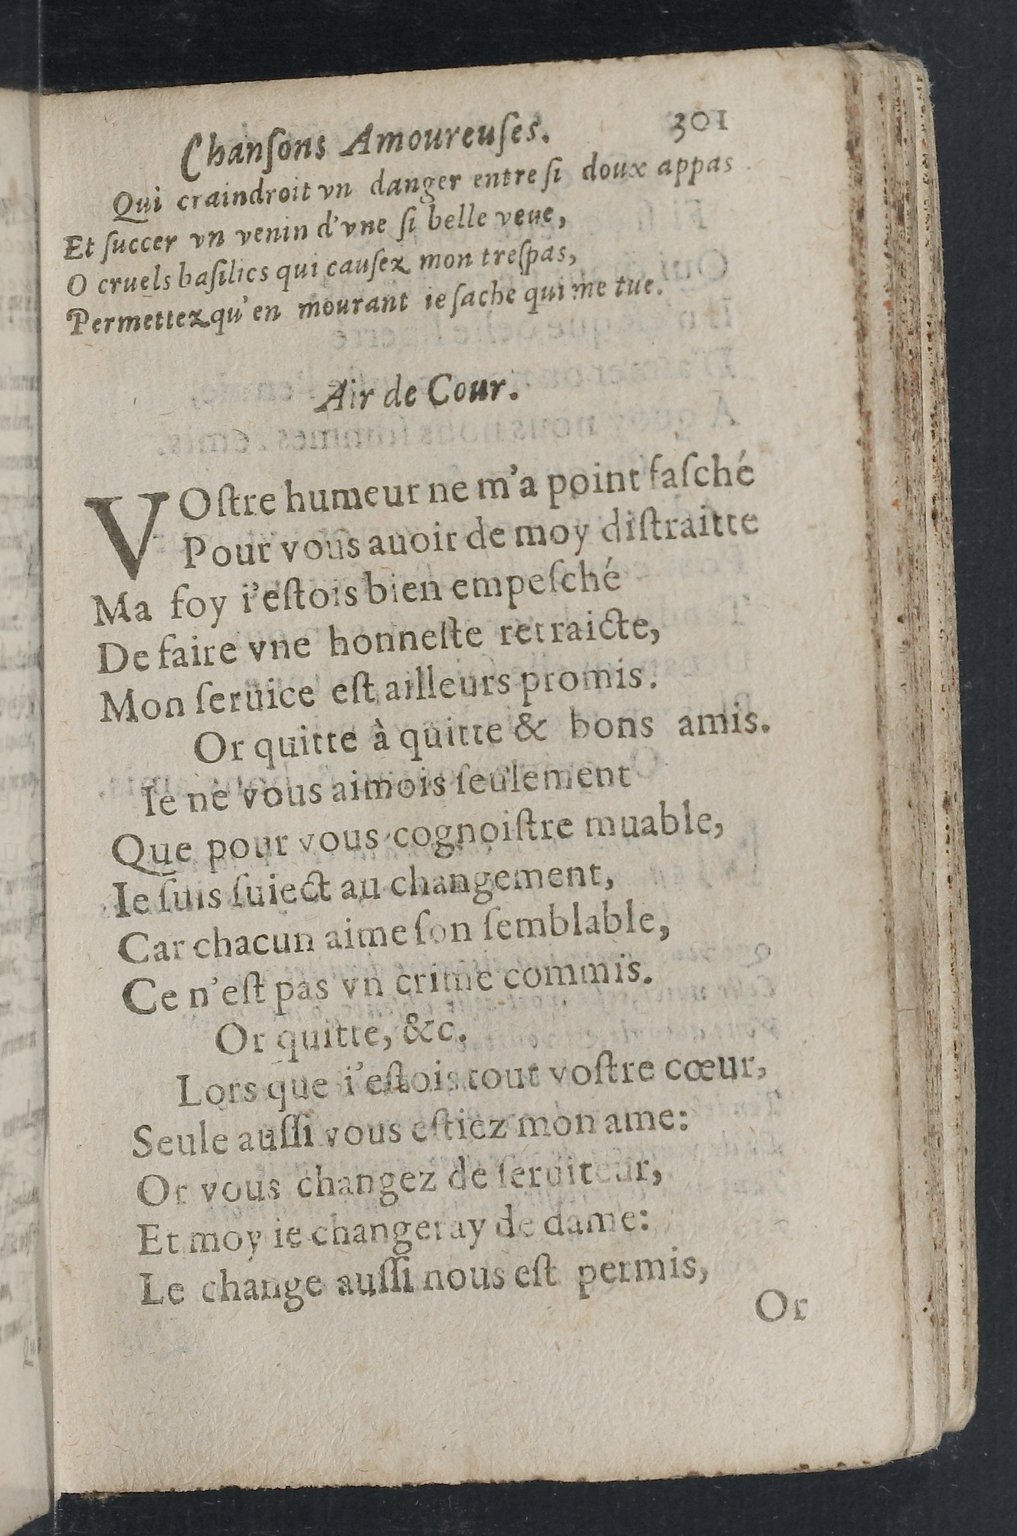 Chanſons Amoureuſes. 301
Qui craindroit vn danger entre ſi doux appas
Et ſuccer vn venin d'vne ſi belle veue,
O cruels baſilics qui cauſez mon treſpas,
Permettez qu'en mourant ie ſache qui me tue.
Air de Cour.
VOſtre humeur ne m'a point faſché
Pour vous auoir de moy diſtraitte
Ma foy i'eſtois bien empeſché
De faire vne honneſte retraicte,
Mon ſeruice eſt ailleurs promis.
Or quitte à quitte & bons amis.
Ie ne vous aimois ſeulement
Que pour vous cognoiſtre muable,
Ie ſuis ſuiect au changement,
Car chacun aime ſon ſemblable,
Ce n'eſt pas vn crime commis.
Or quitte, &c.
Lors que i'eſtois tout voſtre cœur,
Seule auſſi vous eſtiez mon ame:
Or vous changez de ſeruiteur,
Et moy ie changeray de dame:
Le change auſſi nous eſt permis,
Or